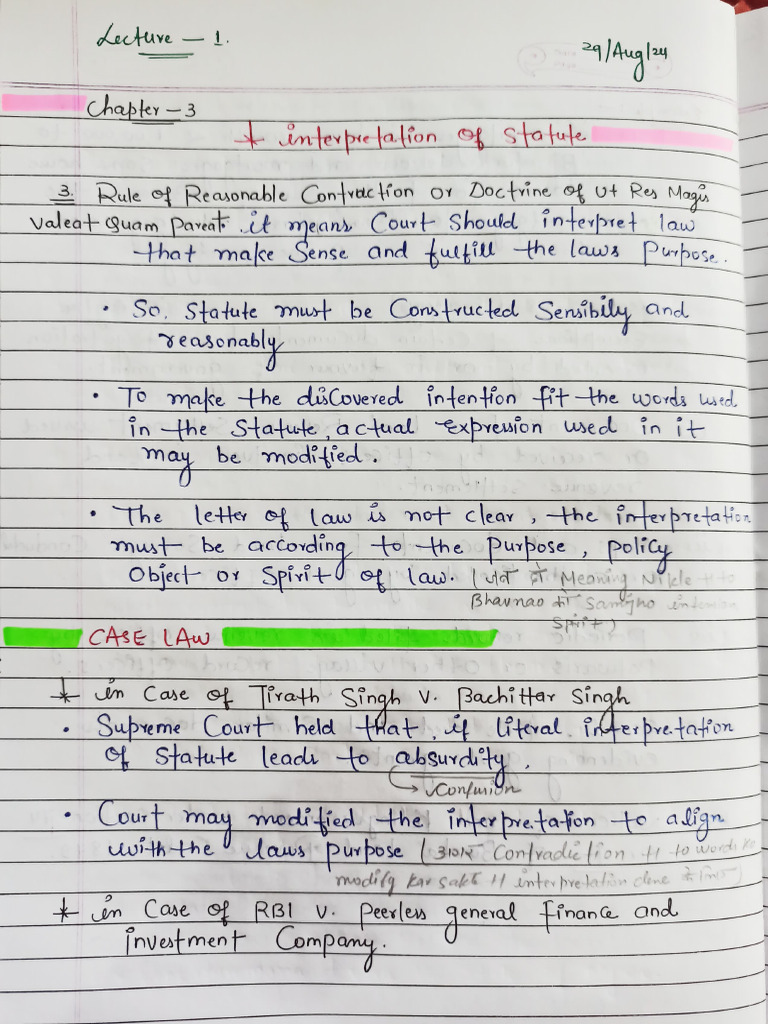 Lecture - 1.
29/Aug/24
Chapter - 3
* interpretation of Statute
3. Rule of Reasonable Contraction or Doctrine of Ut Res Magis
Valeat Quam Pareat. it means Court Should interpret law
that make Sense and fulfill the laws Purpose.
• So, Statute must be Constructed Sensibily and
reasonably
• To make the discovered intention fit the words used
in the Statute, actual Expression used in it
may be modified.
• The letter of law is not clear, the interpretation
must be according to the purpose, policy
Object or Spirit of law. ( जब दो Meaning Nikle
Bhavnao को Samjho
Spirit)
CASE LAW
* in Case of Tirath Singh V. Bachittar Singh
• Supreme Court held that, if literal interpretation
of Statute leads to absurdity,
↳ Confusion
• Court may modified the interpretation to align
with the laws purpose ( अगर Contradiction H to words Ko
modify Kar sakte H interpretation dene के लिए)
* in Case of RBI V. Peerless general Finance and
investment Company.